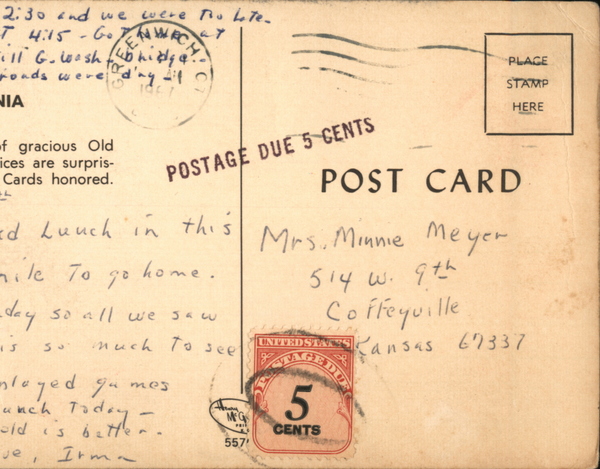 2:30 and we were too late.
T 4:15 - Got at
ill G. Wash bridge
roads were dry -
GREENWICH, CT
1967
PLACE
STAMP
HERE
NIA
of gracious Old
ices are surpris-
Cards honored.
POSTAGE DUE 5 CENTS
POST CARD
ed Lunch in this
mile To go home.
day so all we saw
is so much to see
played games
Lunch Today -
old is better.
ve, Irma
Mrs. Minnie Meyer
514 W. 9th
Coffeyville
Kansas 67337
UNITED STATES
POSTAGE DUE
5
CENTS
557